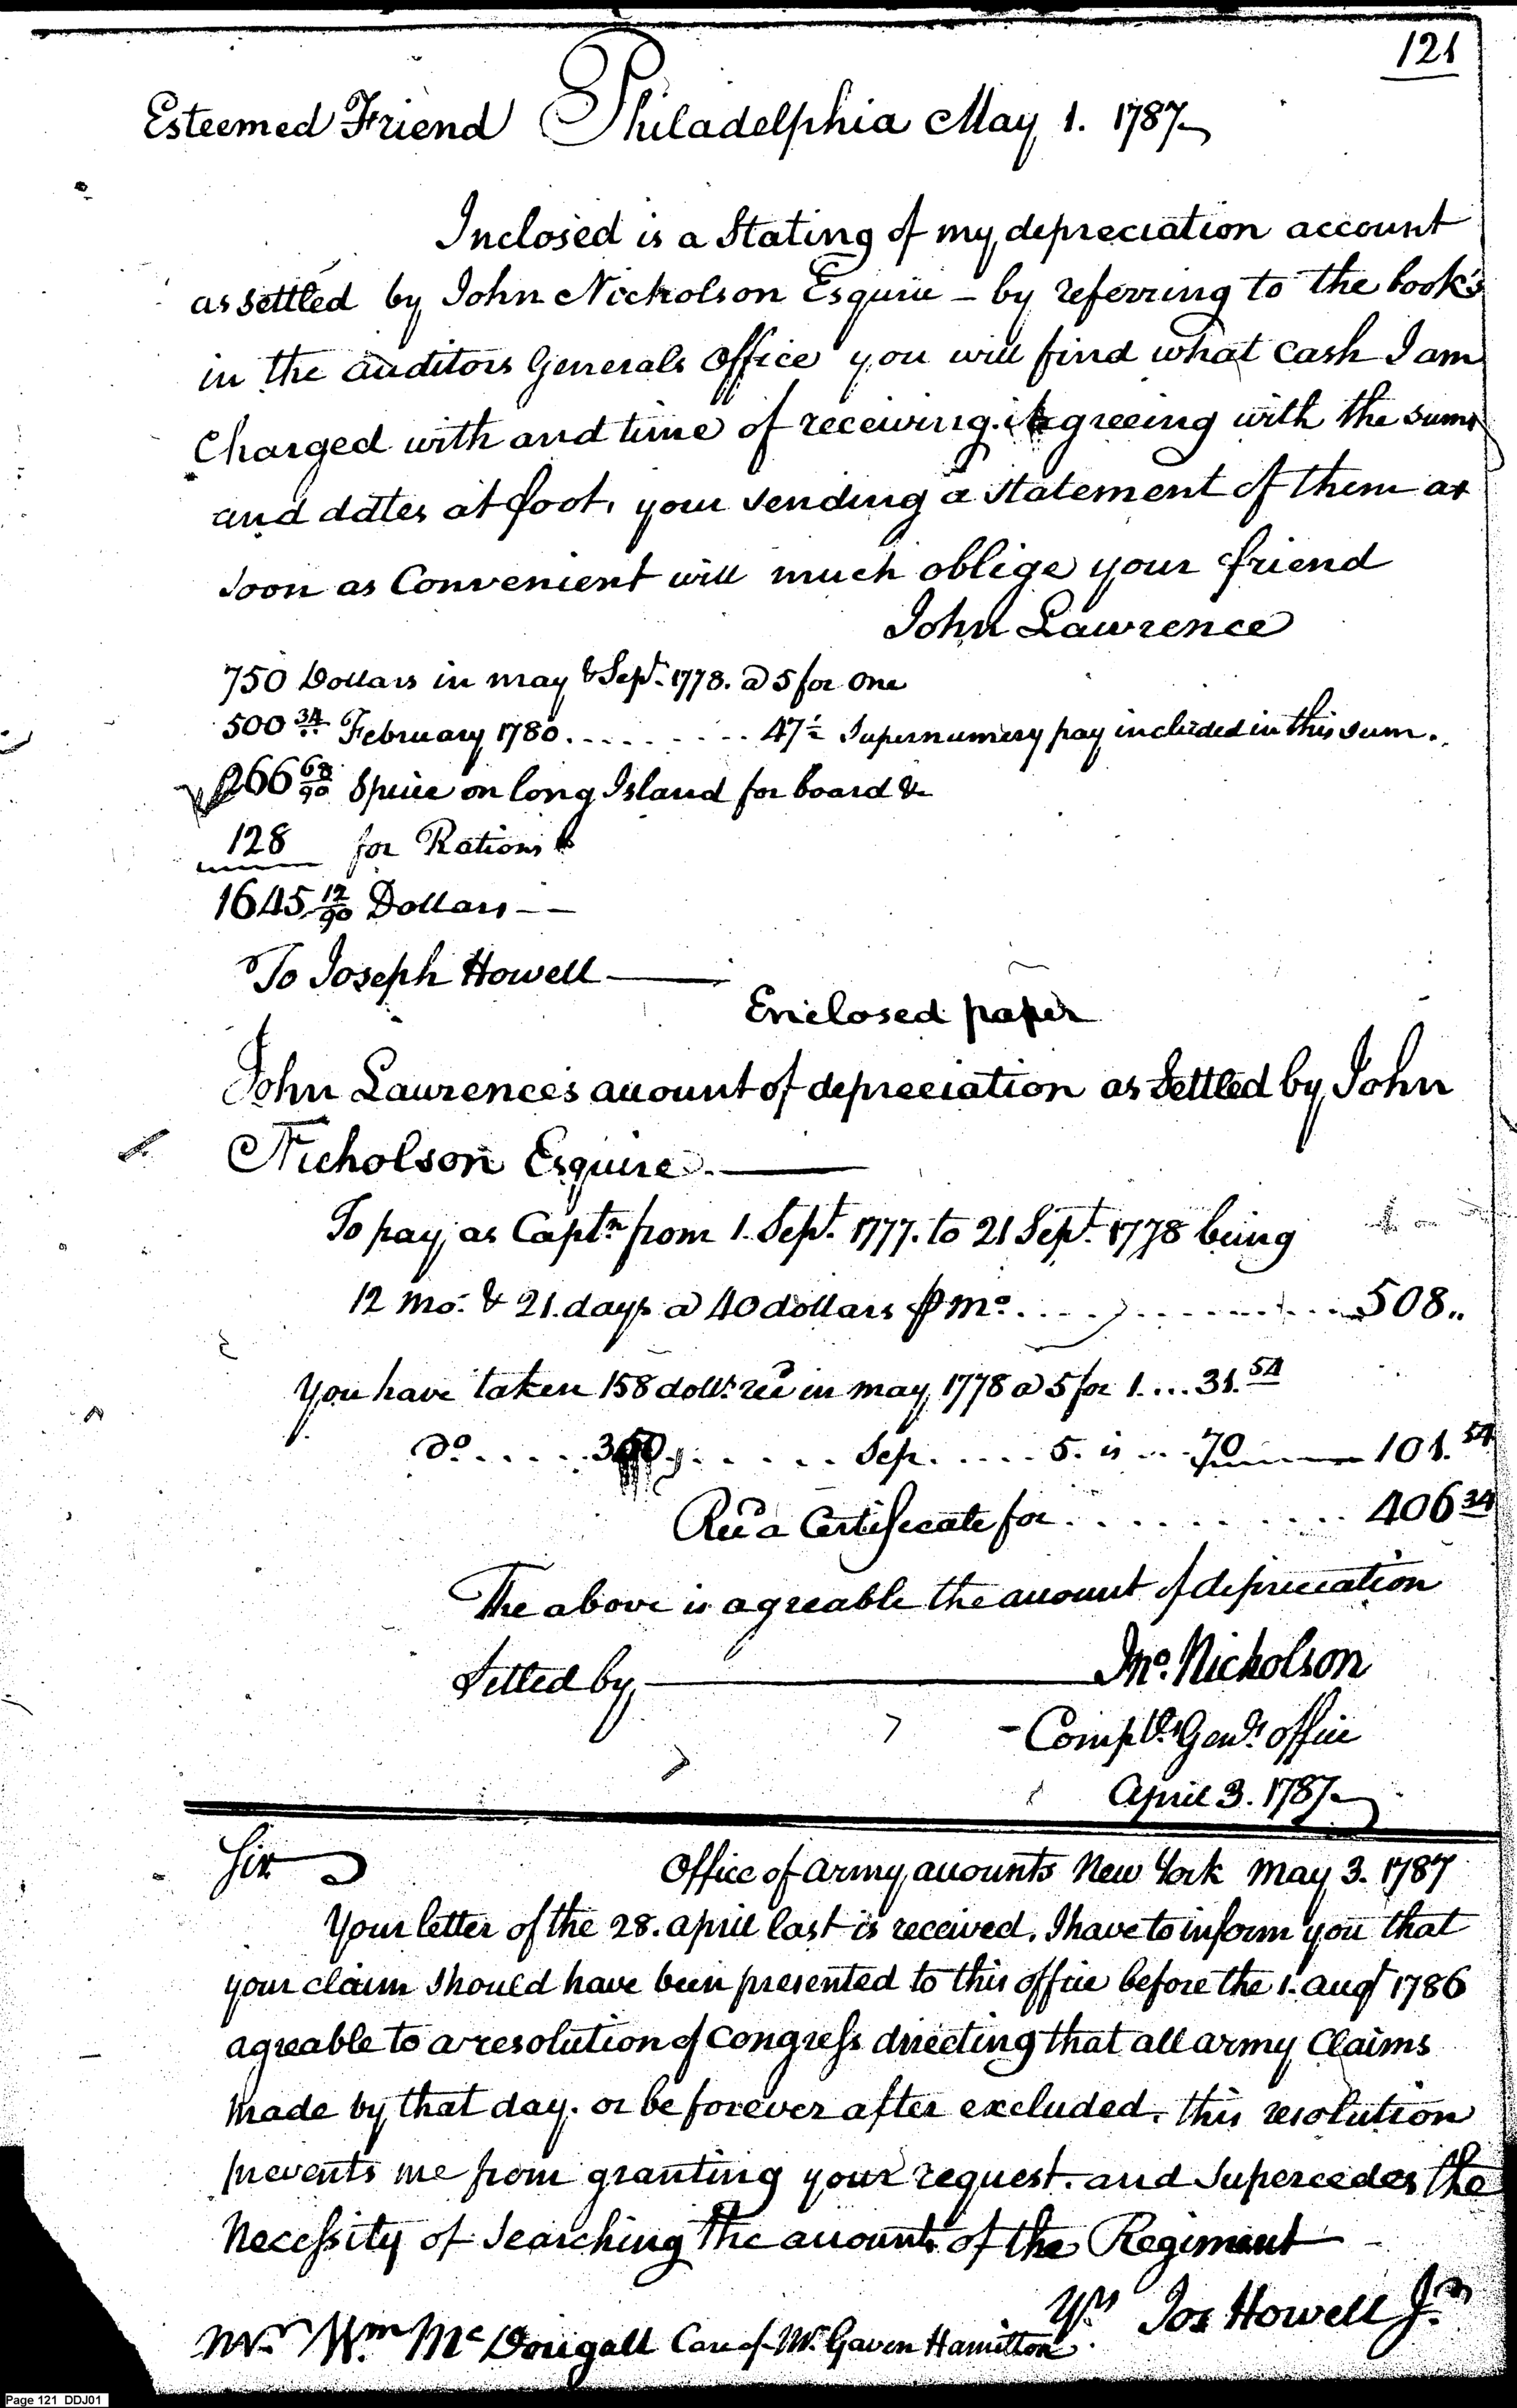 121
Esteemed Friend Philadelphia May 1. 1787
Inclosed is a Stating of my depreciation account
as settled by John Nicholson Esquire – by referring to the book's
in the auditors Generals Office you will find what Cash I am
Charged with and time of receiving. agreeing with the sums
and dates at foot, your sending a statement of them as
soon as Convenient will much oblige your friend
John Lawrence
750 Dollars in may & Sept. 1778. @ 5 for One
500 34 February 1780. . . . . . . . . 47½ Supernumery pay included in this sum.
266 68/90 Spice on long Island for board &
128 for Rations
1645 12/90 Dollars – –
To Joseph Howell
Enclosed paper
John Lawrence's account of depreciation as Settled by John
Nicholson Esquire.
To pay as Captn from 1. Sept. 1777. to 21 Sept. 1778 being
12 mo. & 21. days @ 40 dollars ⅌ mo. . . . . . . . . . 508..
You have taken 158 dolls. recd in may 1778 @ 5 for 1 . . . 31.54
do. . . . . 350 . . . . . Sep. . . . . 5. is . . . 70 101.54
Recd a Certificate for . . . . . . . . . 406 34
The above is agreable the account of depreciation
Settled by Jno. Nicholson
Compt. Genls. office
April 3. 1787
Sir Office of army accounts New York May 3. 1787
Your letter of the 28. april last is received. I have to inform you that
your claim should have been presented to this office before the 1. augt 1786
agreable to a resolution of Congress directing that all army Claims
made by that day. or be forever after excluded. this resolution
prevents me from granting your request. and Supercedes the
Necessity of Searching the accounts of the Regiment
Yrs Jos Howell Jr.
Mr. Wm Mc Dougall Care of Mr. Gaven Hamilton
Page 121 DDJ01